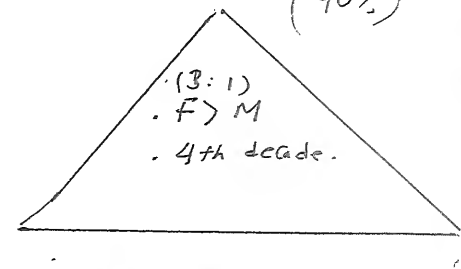 (90%)
. (3:1)
. F > M
. 4th decade.